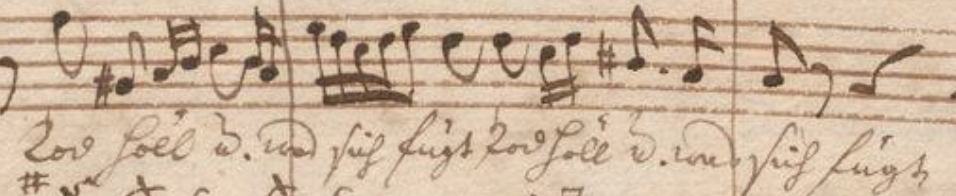 Tod Höll u. was sich fügt Tod Höll u. was sich fügt